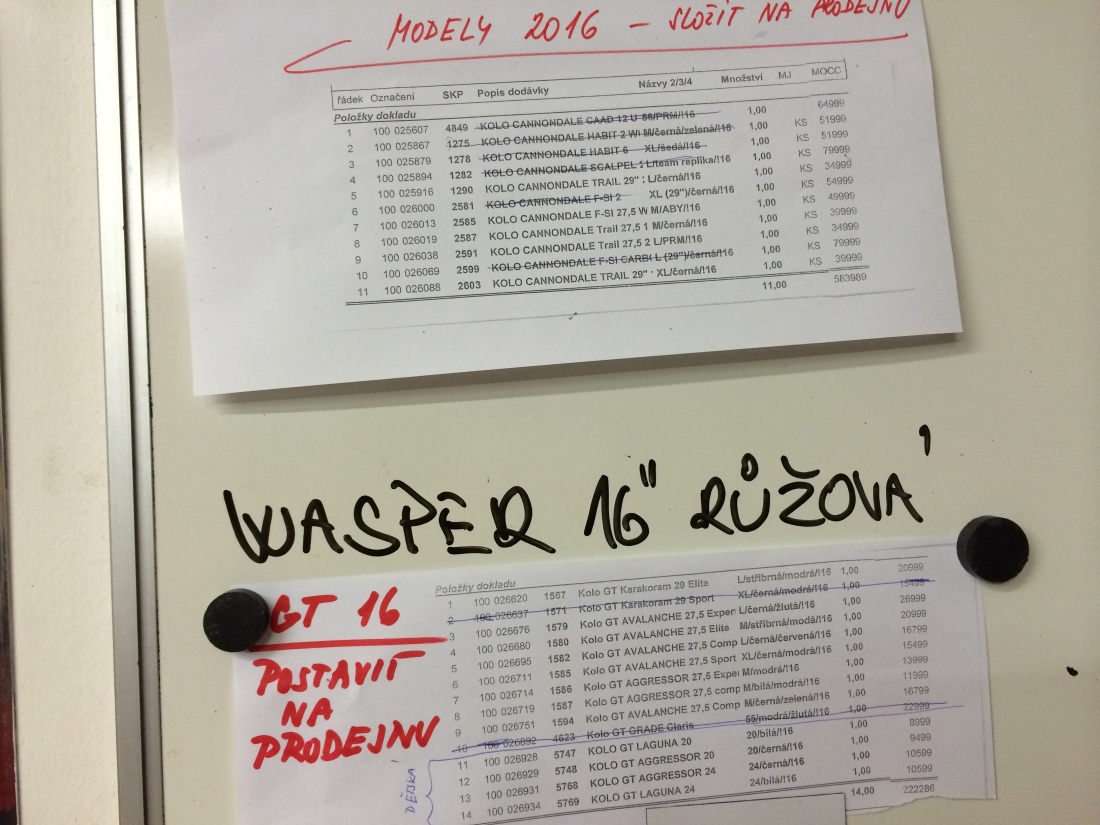 MODELY 2016 - SLOŽIT NA PRODEJNU
řádek Označení SKP Popis dodávky Názvy 2/3/4 Množství MJ MOCC
Položky dokladu
1 100 025607 4849 KOLO CANNONDALE CAAD 12 U 56/PRM/!16 1,00 64999
2 100 025867 1275 KOLO CANNONDALE HABIT 2 WI M/černá/zelená/!16 1,00 KS 51999
3 100 025879 1278 KOLO CANNONDALE HABIT 6 XL/šedá/!16 1,00 KS 51999
4 100 025894 1282 KOLO CANNONDALE SCALPEL L/team replika/!16 1,00 KS 79999
5 100 025916 1290 KOLO CANNONDALE TRAIL 29" L/černá/!16 1,00 KS 34999
6 100 026000 2581 KOLO CANNONDALE F-SI 2 XL (29")/černá/!16 1,00 KS 54999
7 100 026013 2585 KOLO CANNONDALE F-SI 27,5 W M/ABY/!16 1,00 KS 49999
8 100 026019 2587 KOLO CANNONDALE Trail 27,5 1 M/černá/!16 1,00 KS 39999
9 100 026038 2591 KOLO CANNONDALE Trail 27,5 2 L/PRM/!16 1,00 KS 34999
10 100 026069 2599 KOLO CANNONDALE F-SI CARBI L (29")/černá/!16 1,00 KS 79999
11 100 026088 2603 KOLO CANNONDALE TRAIL 29" XL/černá/!16 1,00 KS 39999
11,00 583989
WASPER 16" RŮŽOVÁ
GT 16
POSTAVIT
NA
PRODEJNU
DĚTSKÁ
Položky dokladu
1 100 026620 1567 Kolo GT Karakoram 29 Elite L/stříbrná/modrá/!16 1,00 20999
2 100 026637 1571 Kolo GT Karakoram 29 Sport XL/černá/modrá/!16 1,00 15499
3 100 026676 1579 Kolo GT AVALANCHE 27,5 Exper L/černá/žlutá/!16 1,00 26999
4 100 026680 1580 Kolo GT AVALANCHE 27,5 Elite M/stříbrná/modá/!16 1,00 20999
5 100 026695 1582 Kolo GT AVALANCHE 27,5 Comp L/černá/červená/!16 1,00 16799
6 100 026711 1585 Kolo GT AVALANCHE 27,5 Sport XL/černá/modrá/!16 1,00 15499
7 100 026714 1586 Kolo GT AGGRESSOR 27,5 Exper M/modrá/!16 1,00 13999
8 100 026719 1587 Kolo GT AGGRESSOR 27,5 comp M/bílá/modrá/!16 1,00 11999
9 100 026751 1594 Kolo GT AVALANCHE 27,5 Comp M/černá/zelená/!16 1,00 16799
10 100 026892 4623 Kolo GT GRADE Claris 55/modrá/žlutá/!16 1,00 22999
11 100 026928 5747 KOLO GT LAGUNA 20 20/bílá/!16 1,00 8999
12 100 026929 5748 KOLO GT AGGRESSOR 20 20/černá/!16 1,00 9499
13 100 026931 5768 KOLO GT AGGRESSOR 24 24/černá/!16 1,00 10599
14 100 026934 5769 KOLO GT LAGUNA 24 24/bílá/!16 1,00 10599
14,00 222286